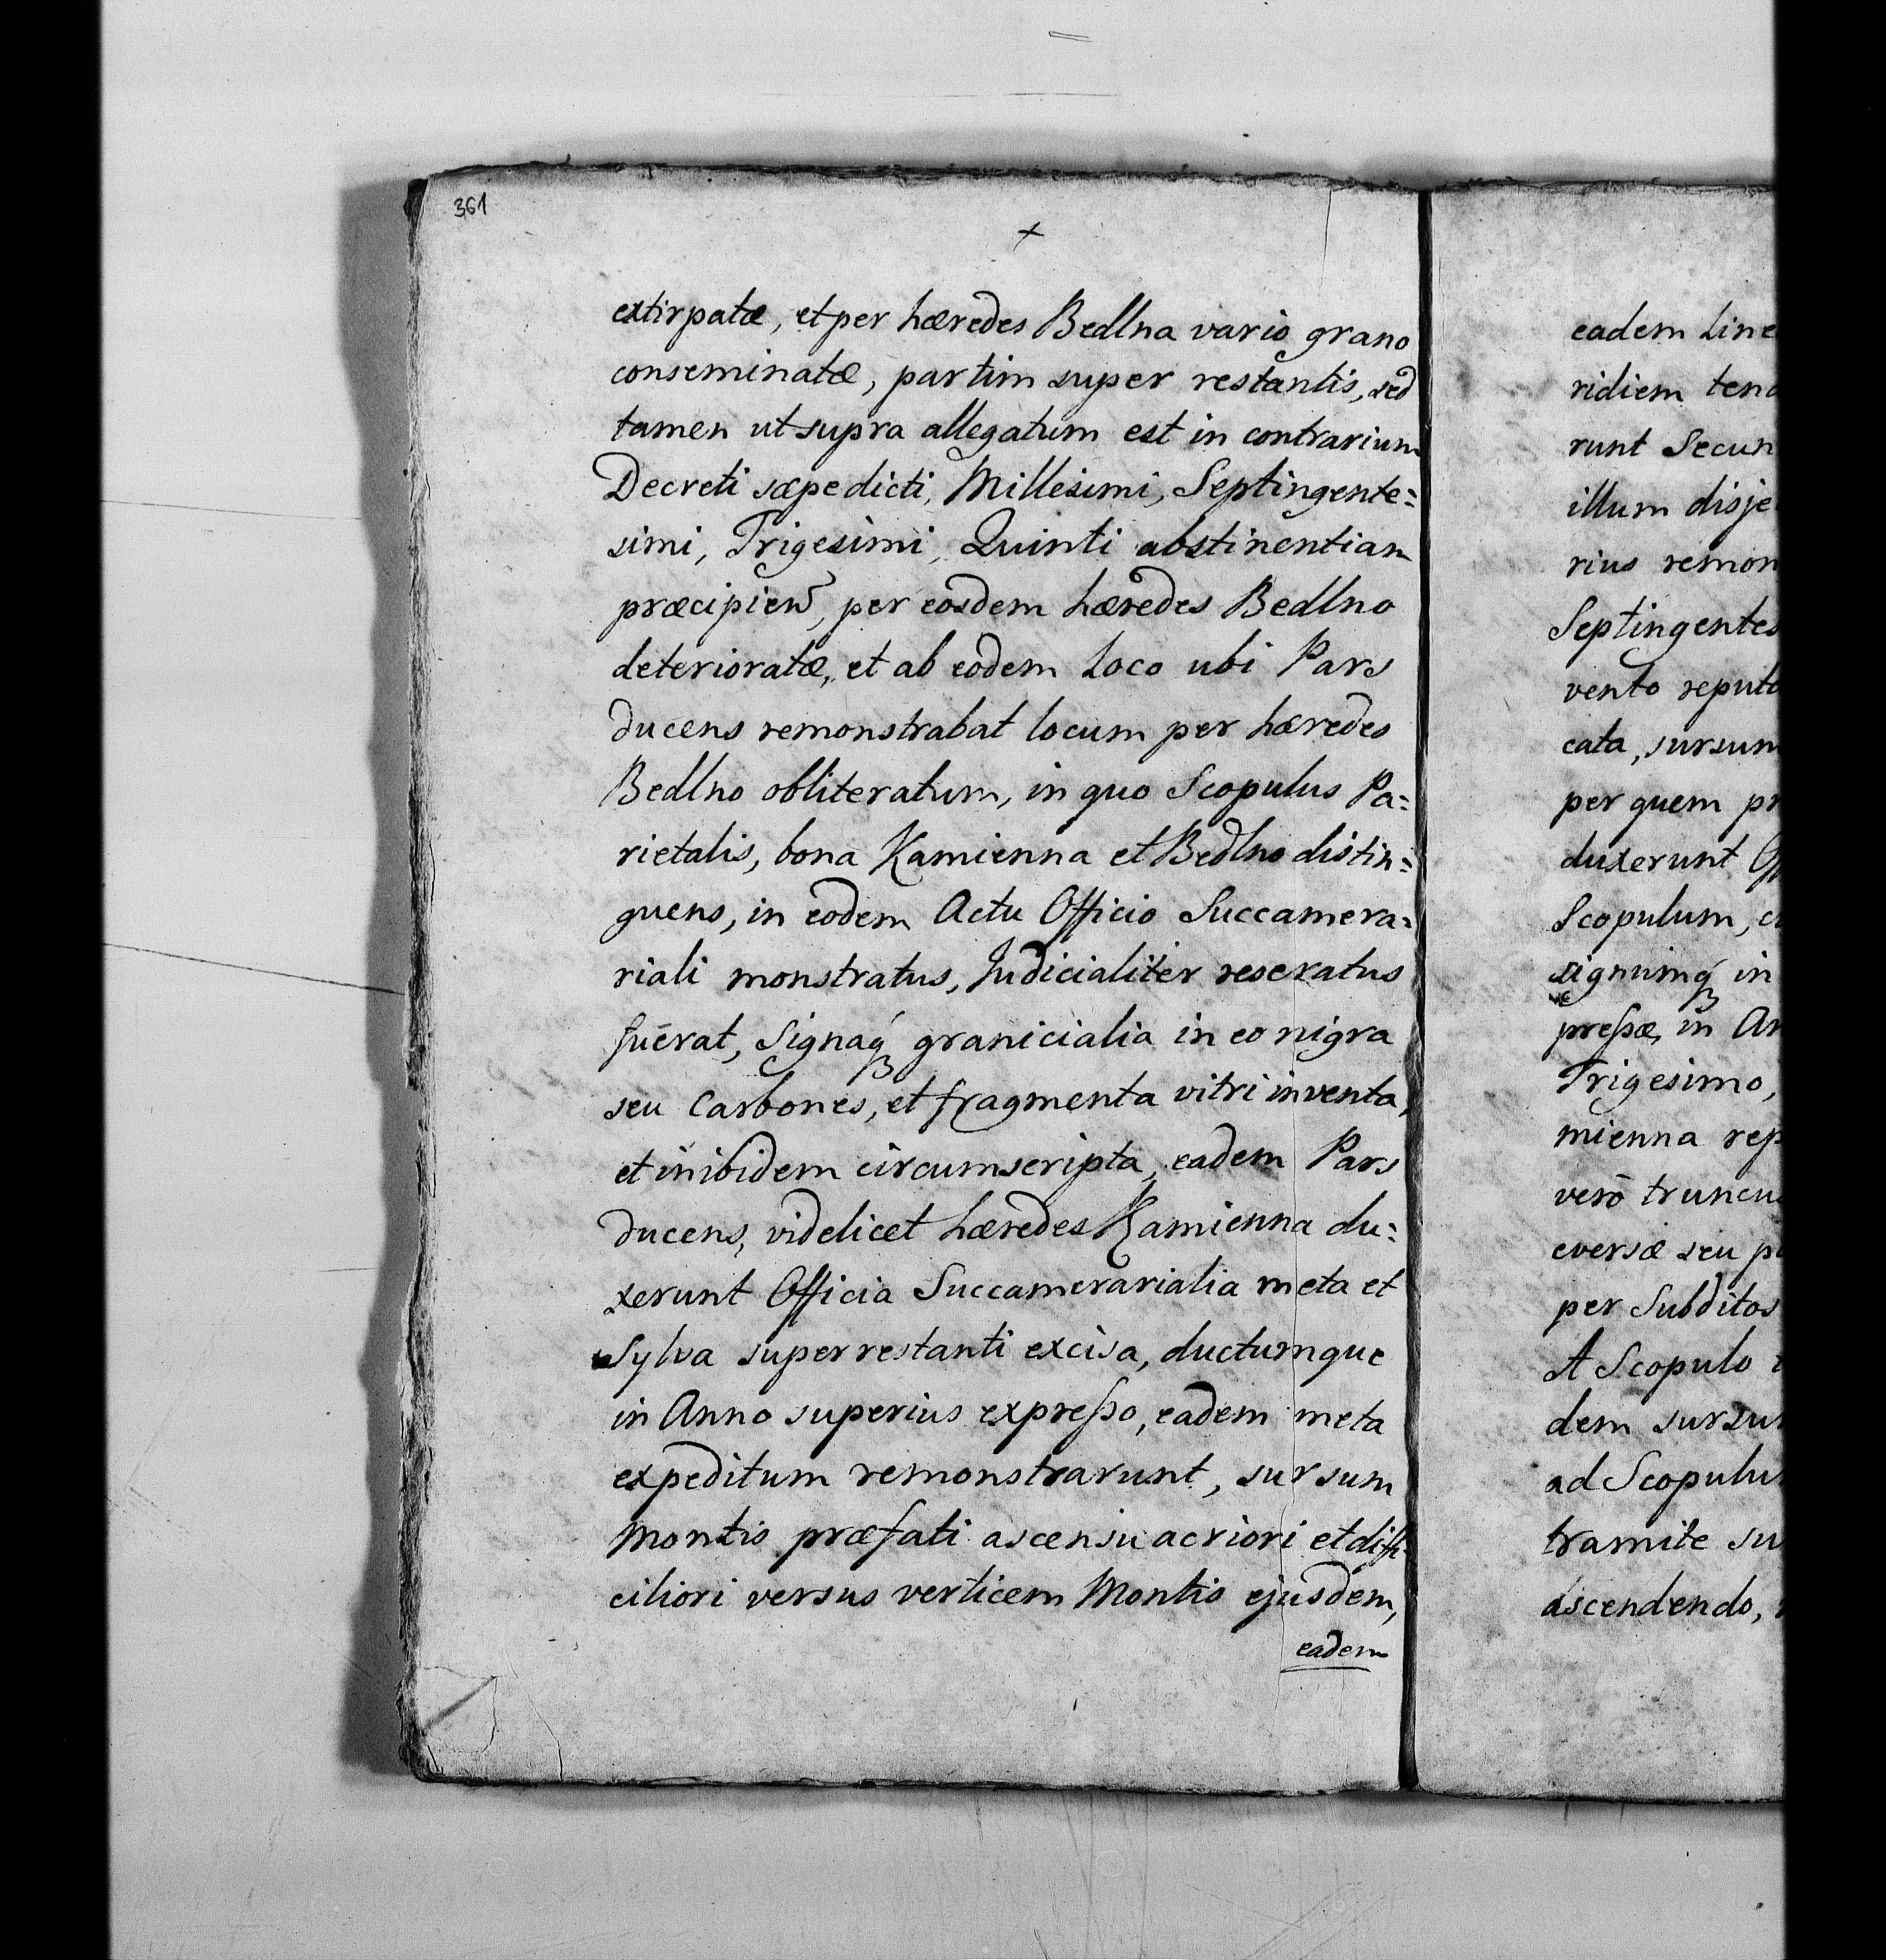 361
+
extirpatæ, et per hæredes Bedlna vario grano
conseminatæ, partim super restantis, sed
tamen ut supra allegatum est in contrarium
Decreti sæpedicti, Millesimi, Septingente=
simi, Trigesimi, Quinti abstinentiam
per eosdem hæredes Bedlno
deterioratæ, et ab eodem Loco ubi Pars
ducens remonstrabat locum per hæredes
Bedlno obliteratum, in quo Scopulus Pa=
rietalis, bona Kamienna et Bedlno distin=
guens, in eodem Actu Officio Succamera=
riali monstratus, Judicialiter reseratus
fuērat, Signaq́ granicialia in eo nigra
seu Carbones, et fragmenta vitri inventa,
et inibidem circumscripta, eadem Pars
ducens, videlicet hæredes Kamienna du=
xerunt Officia Succamerarialia meta et
Sylva super restanti excisa, ductumque
in Anno superius expreſso, eadem meta
expeditum remonstrarunt, sursum
Montis præfati ascensu acriori et diffi=
ciliori versus verticem Montis ejusdem,
eadem
eadem Line
ridiem ten
runt Secun
illum disje
rius remon
Septingentes
vento reput
cata, sursum
per quem pr
duxerunt Off
Scopulum, c
signumq́ in
preſsæ, in An
Trigesimo,
mienna rep
verō truncu
eversæ seu p
per Subditos
A Scopulo
dem sursu
ad Scopulu
tramite su
ascendendo,